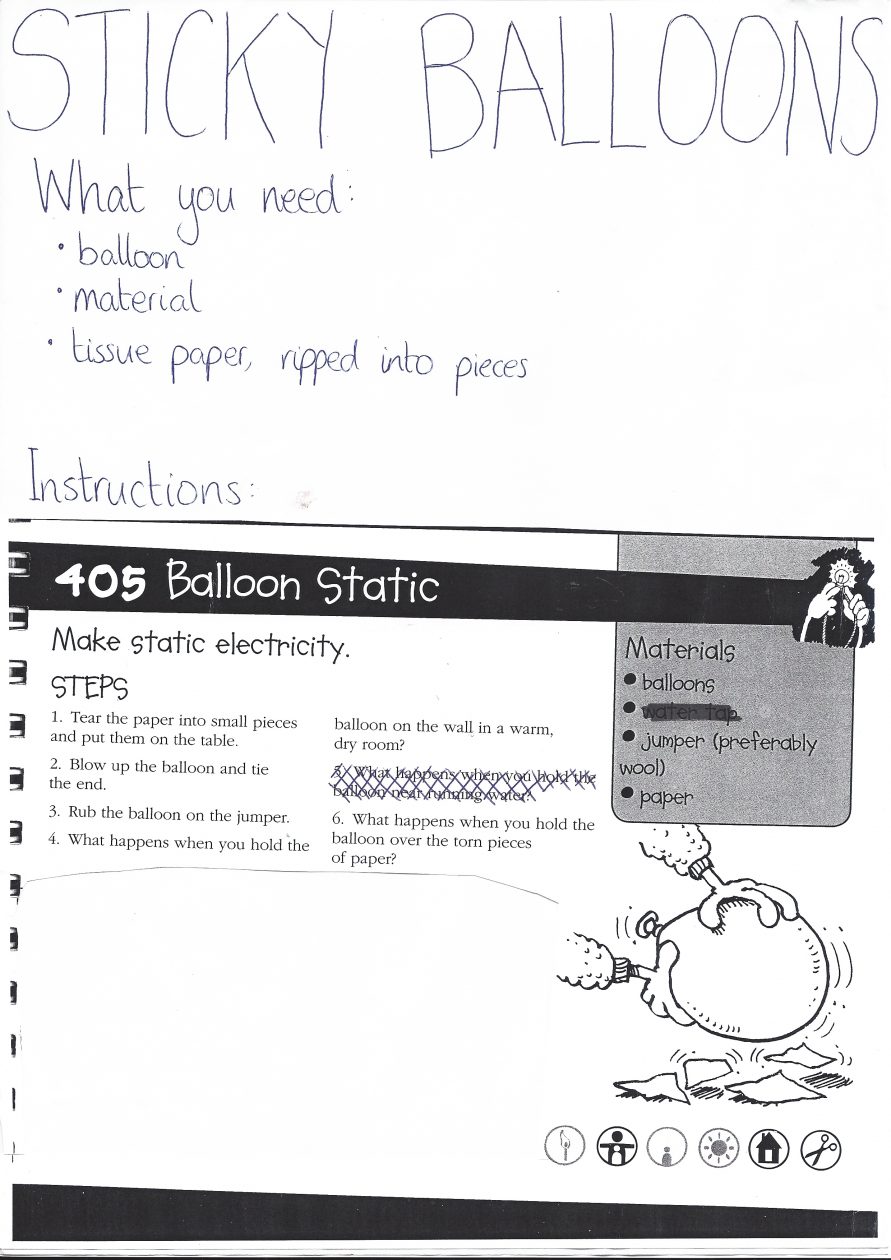 STICKY BALLOONS
What you need:
• balloon
• material
• tissue paper, ripped into pieces
Instructions:
405 Balloon Static
Make static electricity.
STEPS
1. Tear the paper into small pieces
and put them on the table.
2. Blow up the balloon and tie
the end.
3. Rub the balloon on the jumper.
4. What happens when you hold the
balloon on the wall in a warm,
dry room?
5. What happens when you hold the
balloon near running water?
6. What happens when you hold the
balloon over the torn pieces
of paper?
Materials
• balloons
• water tap
• jumper (preferably
wool)
• paper